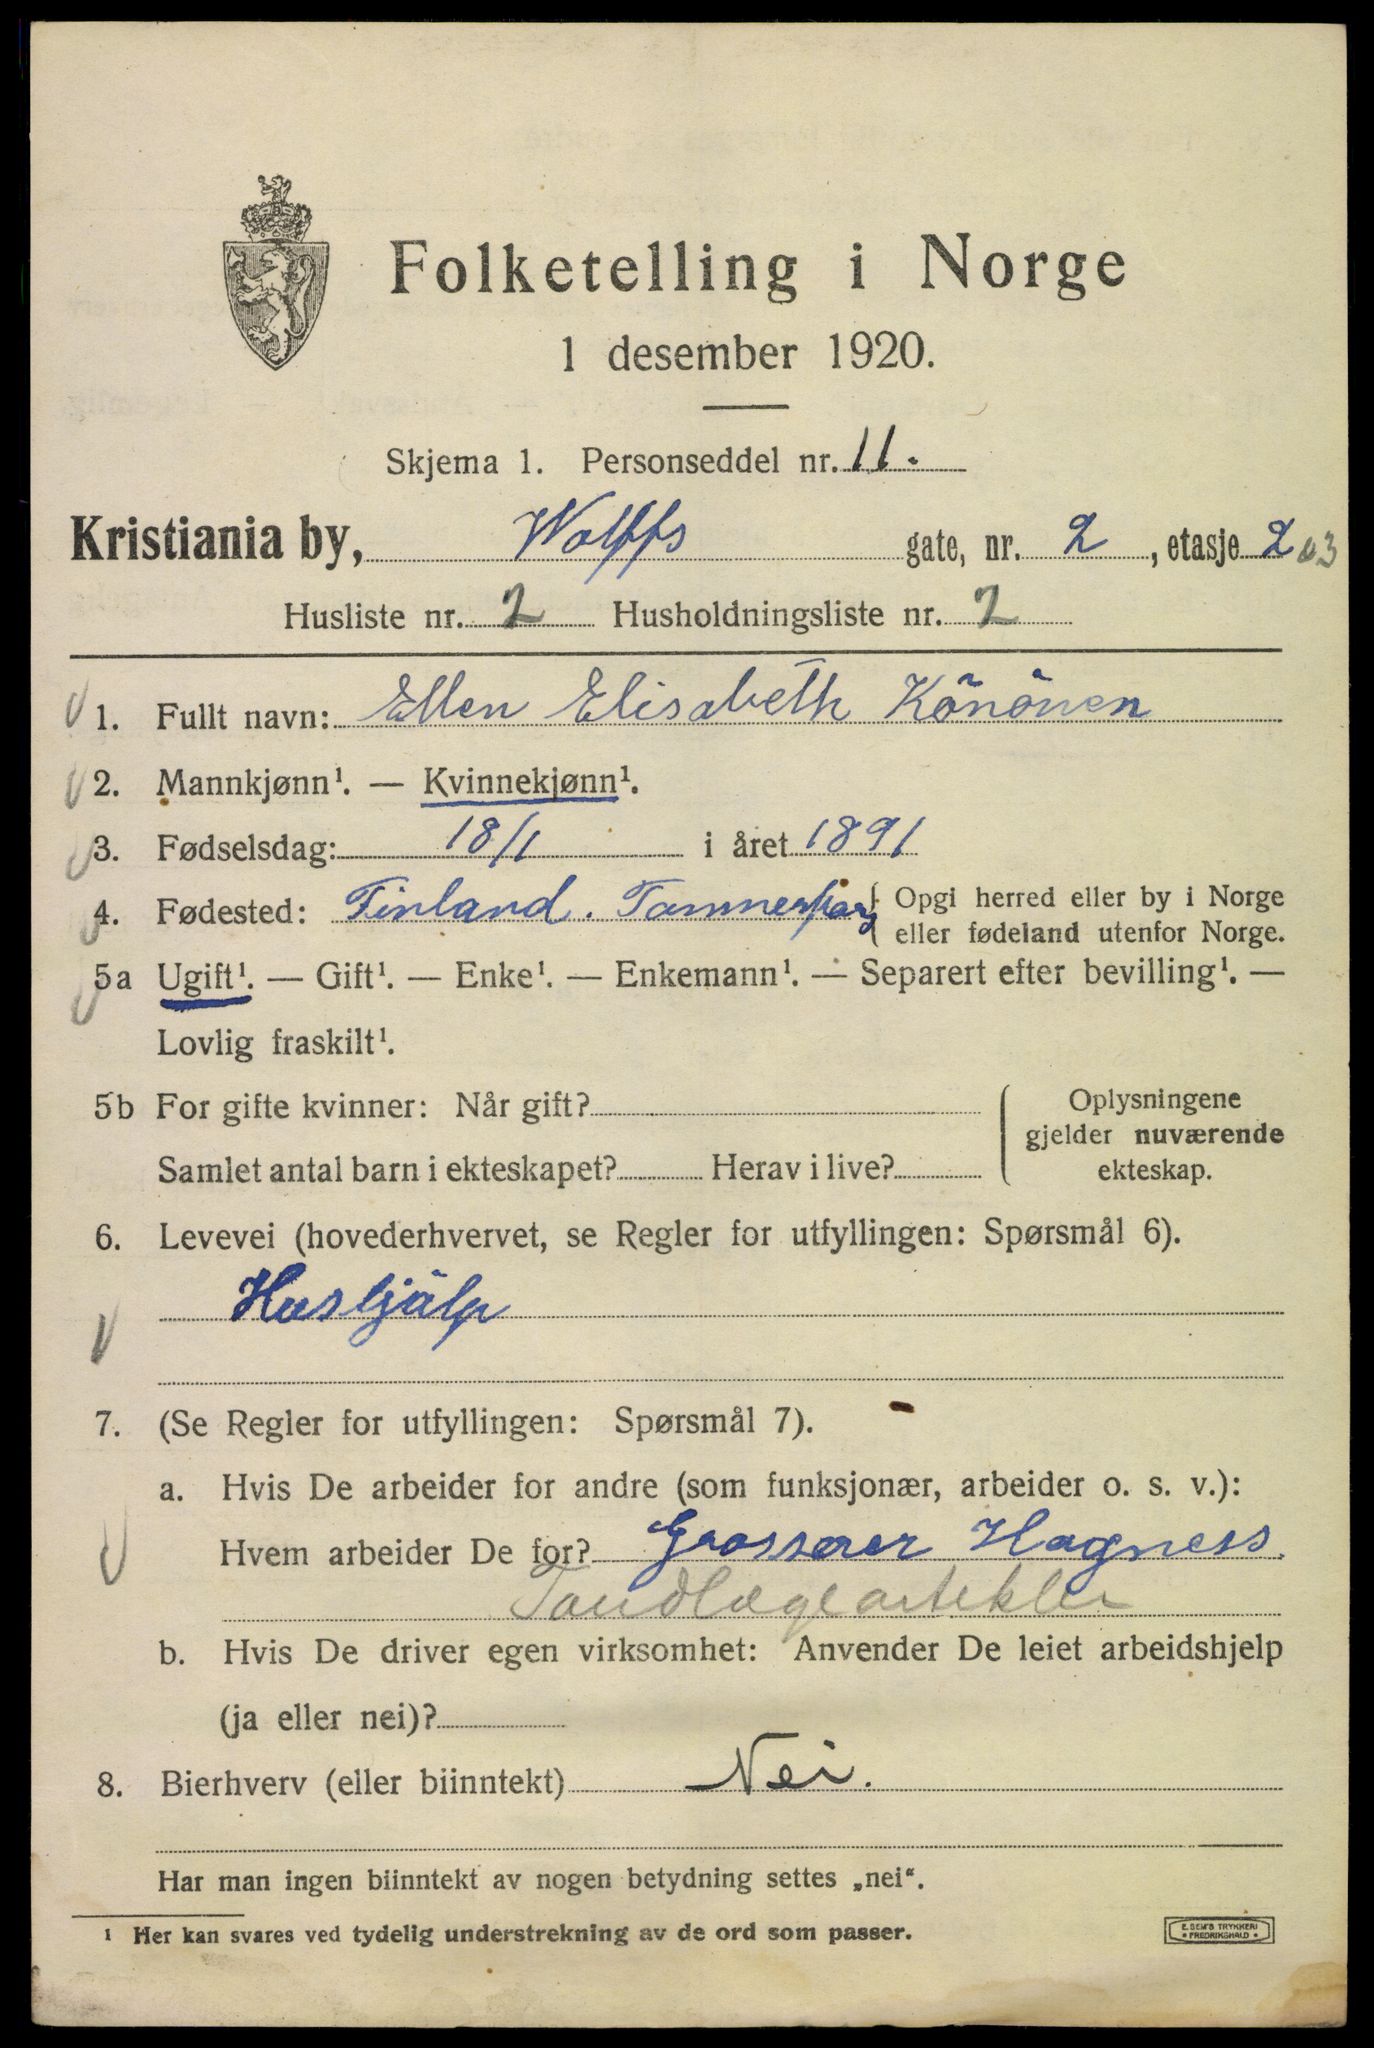 Folketelling i Norge
1 desember 1920.
Skjema 1. Personseddel nr. 11.
Kristiania by, Wolffs gate, nr. 2, etasje 2 03
Husliste nr. 2 Husholdningsliste nr. 2
1. Fullt navn: Ellen Elisabeth Könönen
2. Mannkjønn¹. — Kvinnekjønn¹.
3. Fødselsdag: 18/1 i året 1891
4. Fødested: Finland. Tammerfors { Opgi herred eller by i Norge
eller fødeland utenfor Norge.
5a Ugift¹. — Gift¹. — Enke¹. — Enkemann¹. — Separert efter bevilling¹. —
Lovlig fraskilt¹.
5b For gifte kvinner: Når gift?
Samlet antal barn i ekteskapet? Herav i live?
Oplysningene
gjelder nuværende
ekteskap.
6. Levevei (hovederhvervet, se Regler for utfyllingen: Spørsmål 6).
Hushjälp
7. (Se Regler for utfyllingen: Spørsmål 7).
a. Hvis De arbeider for andre (som funksjonær, arbeider o. s. v.):
Hvem arbeider De for? Grosserer Hagness.
Tandlægeartikler
b. Hvis De driver egen virksomhet: Anvender De leiet arbeidshjelp
(ja eller nei)?
8. Bierhverv (eller biinntekt) Nei.
Har man ingen biinntekt av nogen betydning settes „nei“.
¹ Her kan svares ved tydelig understrekning av de ord som passer.
E. SEM'S TRYKKERI
• FREDRIKSHALD •